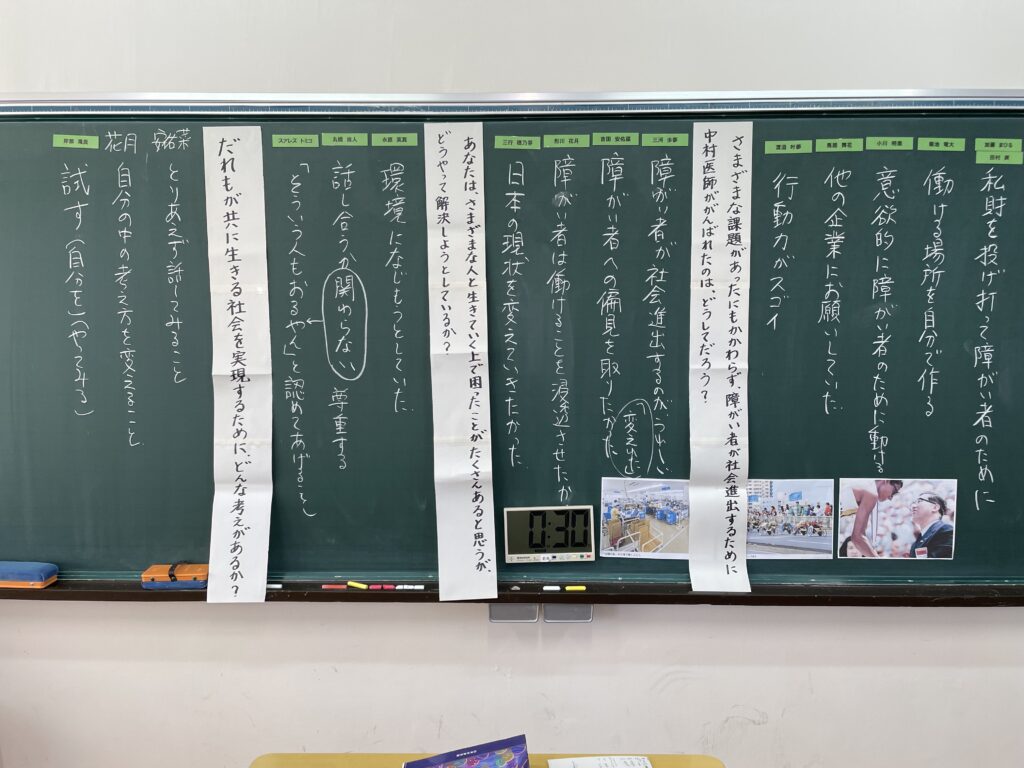 加藤 まひる
田村 爽
私財を投げ打って障がい者のために
菊池 竜大
働ける場所を自分で作る
小川 明里
意欲的に障がい者のために動ける
馬路 舞花
他の企業にお願いしていた
渡辺 叶夢
行動力がスゴイ
さまざまな課題があったにもかかわらず、障がい者が社会進出するために
中村医師ががんばれたのは、どうしてだろう？
三河 歩夢
障がい者が社会進出するのがうれしい
吉田 安佑羅
障がい者への偏見を取りたかった
「変え出た
形川 花月
障がい者は働けることを浸透させたか
三行 穂乃芽
日本の現状を変えていきたかった
0:30
あなたは、さまざまな人と生きていく上で困ったことがたくさんあると思うが、
どうやって解決しようとしているか？
環境になじもうとしていた
丸橋 由人
話し合うか関わらない 尊重する
スアレス トミコ
「そういう人もおるやん」と認めてあげること
だれもが共に生きる社会を実現するために、どんな考えがあるか？
とりあえず話してみること
花月
自分の中の考え方を変えること
試す(自分を)(やってみる)